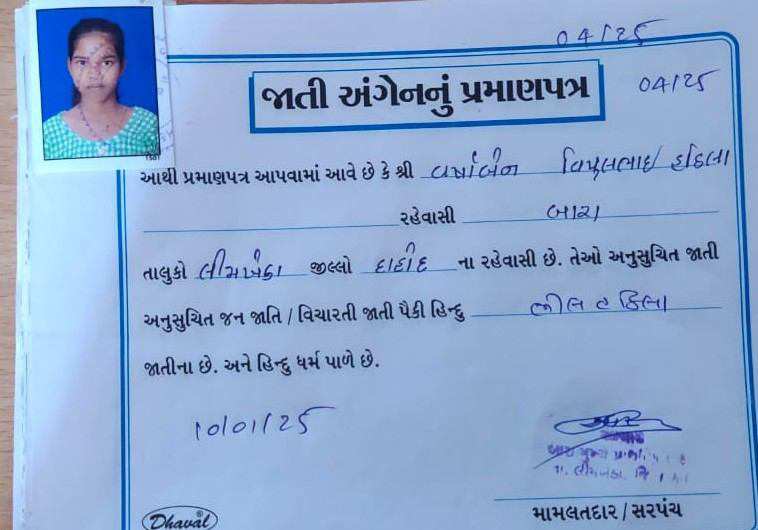 04/25
જાતી અંગેનનું પ્રમાણપત્ર 04/25
આથી પ્રમાણપત્ર આપવામાં આવે છે કે શ્રી વર્ષાબેન વિપુલભાઇ
રહેવાસી બારા
તાલુકો લીમખેડા જીલ્લો દાહોદ ના રહેવાસી છે. તેઓ અનુસુચિત જાતી
અનુસુચિત જન જાતિ / વિચારતી જાતી પૈકી હિન્દુ ભીલ
જાતીના છે. અને હિન્દુ ધર્મ પાળે છે.
10/01/25
મામલતદાર / સરપંચ
Dhaval®